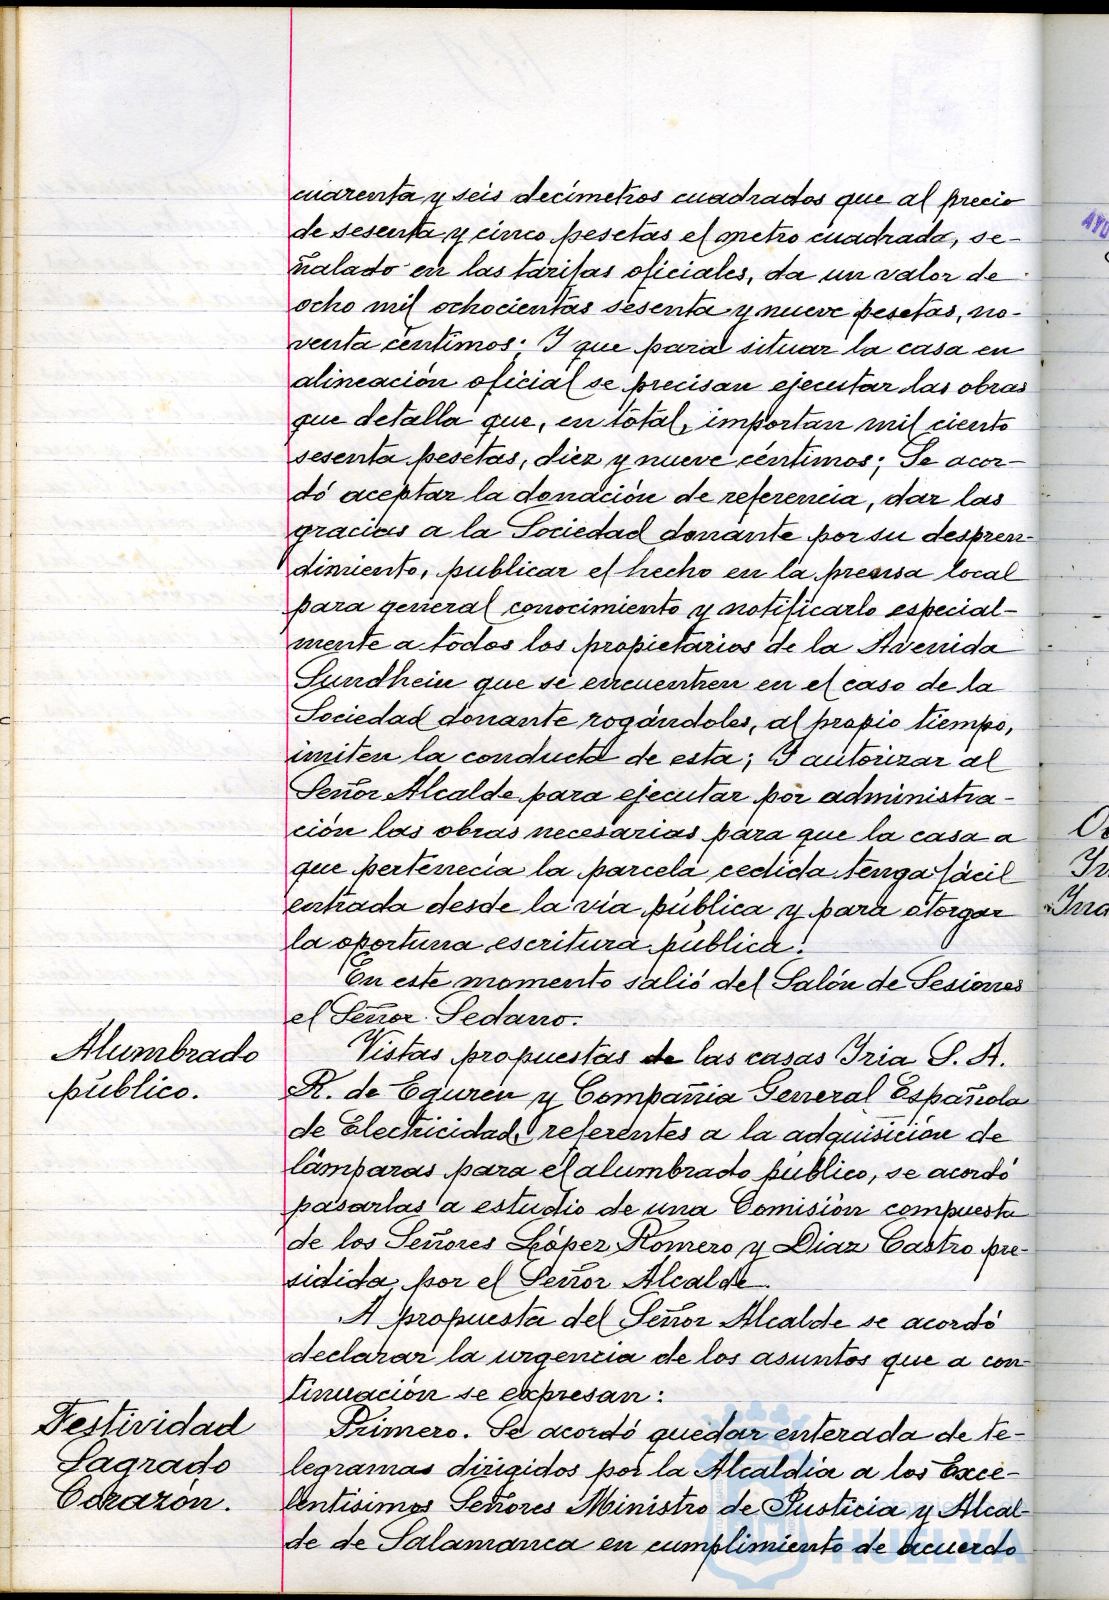 cuarenta y seis decímetros cuadrados que al precio
de sesenta y cinco pesetas el metro cuadrado, se-
ñalado en las tarifas oficiales, da un valor de
ocho mil ochocientas sesenta y nueve pesetas, no-
venta céntimos; Y que para situar la casa en
alineación oficial se precisan ejecutar las obras
que detalla que, en total, importan mil ciento
sesenta pesetas, diez y nueve céntimos; Se acor-
dó aceptar la donación de referencia, dar las
gracias a la Sociedad donante por su despren-
dimiento, publicar el hecho en la prensa local
para general conocimiento y notificarlo especial-
mente a todos los propietarios de la Avenida
Sundhein que se encuentren en el caso de la
Sociedad donante rogándoles, al propio tiempo,
imiten la conducta de esta; Y autorizar al
Señor Alcalde para ejecutar por administra-
ción las obras necesarias para que la casa a
que pertenecía la parcela cedida tenga fácil
entrada desde la vía pública y para otorgar
la oportuna escritura pública.
En este momento salió del Salón de Sesiones
el Señor Sedano.
Alumbrado
público.
Vistas propuestas de las casas Iria S. A.
R. de Eguren y Compañia General Española
de Electricidad, referentes a la adquisición de
lámparas para el alumbrado público, se acordó
pasarlas a estudio de una Comisión compuesta
de los Señores López Romero y Diaz Castro pre-
sidida por el Señor Alcalde.
A propuesta del Señor Alcalde se acordó
declarar la urgencia de los asuntos que a con-
tinuación se expresan:
Festividad
Sagrado
Corazón.
Primero. Se acordó quedar enterada de te-
legramas dirigidos por la Alcaldía a los Exce-
lentísimos Señores Ministro de Justicia y Alcal-
de de Salamanca en cumplimiento de acuerdo
HUELVA